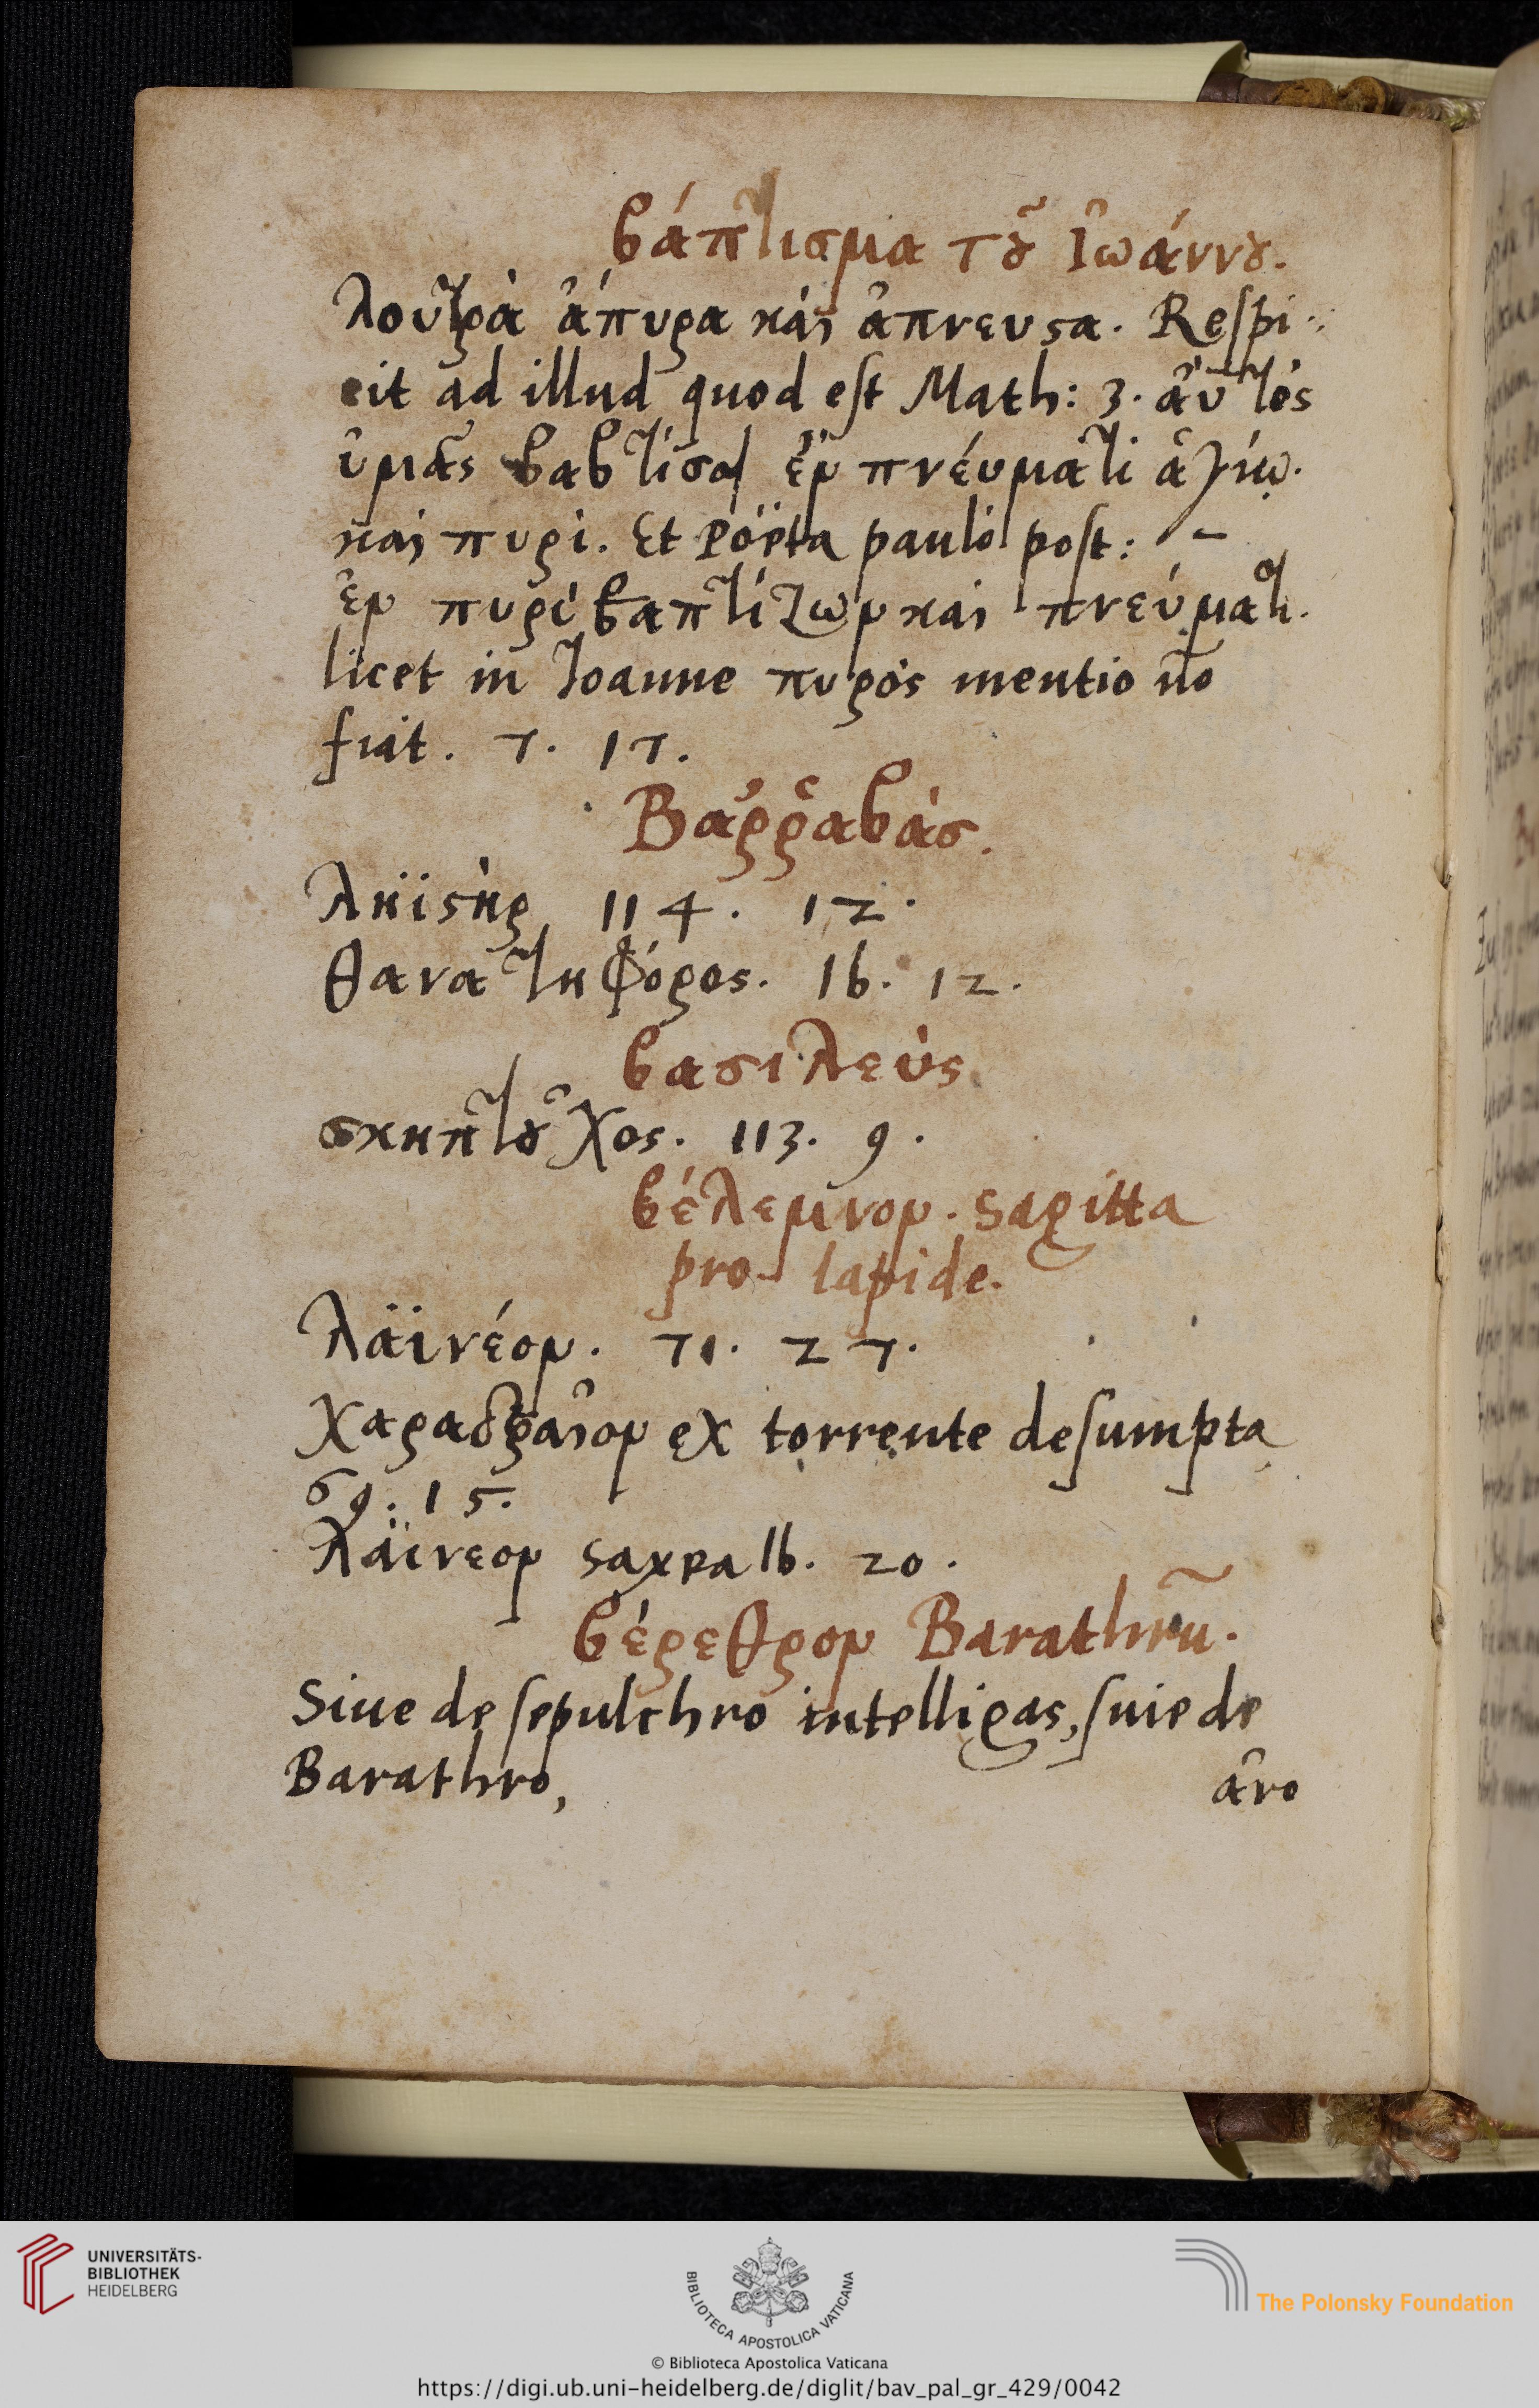 βάπτισμα τȣ͂ Ἰωάννȣ.
λουτρὰ ἄπυρα καὶ ἄπνευϛα. Respi-
cit ad illud quod est Math: 3. ἀυτὸς
ὑμᾶς βαβτίσαι ἐν πνέυματι ἁγίῳ.
καὶ πυρὶ. Et Poëta paulò post:
ἐν πυρὶ βαπτίζων καὶ πνεύματι.
licet in Joanne πυρὸς mentio nō
fuit. 7. 17.
Βαῤῥαβὰσ.
ληϊϛὴρ 114. 12.
θανατηφόρος. Ib. 12.
βασιλεὺς
σκηπτȣ͂χος. 113. 9.
βέλεμνον. sagitta
pro lapide.
λαϊνέον. 71. 27.
χαραδραῖον ex torrente desumpta
69. 15.
λαϊνεον saxea Ib. 20.
βέρεθρον Barathrū.
Siue de sepulchro intelligas, suie de
Barathro,
ἀνο
UNIVERSITÄTS-
BIBLIOTHEK
HEIDELBERG
BIBLIOTECA APOSTOLICA VATICANA
The Polonsky Foundation
© Biblioteca Apostolica Vaticana
https://digi.ub.uni-heidelberg.de/diglit/bav_pal_gr_429/0042